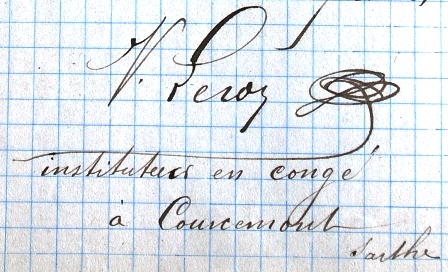 V. Leroy
instituteur en congé
à Courcemont
Sarthe